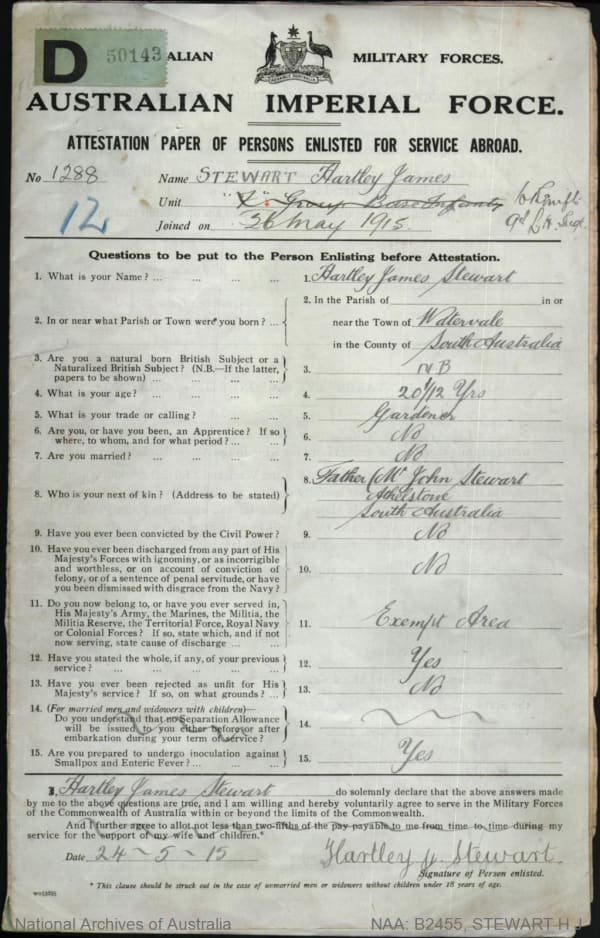 D 50143
AUSTRALIAN MILITARY FORCES.
AUSTRALIAN IMPERIAL FORCE.
ATTESTATION PAPER OF PERSONS ENLISTED FOR SERVICE ABROAD.
No 1288 Name STEWART Hartley James
12 Unit "X" Group Base Infantry
9th L.H. Regt
Joined on 26 May 1915.
Questions to be put to the Person Enlisting before Attestation.
1. What is your Name? ... ... ... ... 1. Hartley James Stewart
2. In or near what Parish or Town were you born? ... 2. In the Parish of in or
near the Town of Watervale
in the County of South Australia
3. Are you a natural born British Subject or a
Naturalized British Subject? (N.B.—If the latter,
papers to be shown) ... ... ... 3. NB
4. What is your age? ... ... ... ... 4. 20 1/12 Yrs
5. What is your trade or calling? ... ... 5. Gardener
6. Are you, or have you been, an Apprentice? If so
where, to whom, and for what period? ... ... 6. No
7. Are you married? ... ... ... ... 7. No
8. Who is your next of kin? (Address to be stated) 8. Father (Mr John Stewart
Athelstone
South Australia
9. Have you ever been convicted by the Civil Power? 9. No
10. Have you ever been discharged from any part of His
Majesty's Forces with ignominy, or as incorrigible
and worthless, or on account of conviction of
felony, or of a sentence of penal servitude, or have
you been dismissed with disgrace from the Navy? 10. No
11. Do you now belong to, or have you ever served in,
His Majesty's Army, the Marines, the Militia, the
Militia Reserve, the Territorial Force, Royal Navy
or Colonial Forces? If so, state which, and if not
now serving, state cause of discharge ... ... 11. Exempt Area
12. Have you stated the whole, if any, of your previous
service? ... ... ... ... 12. Yes
13. Have you ever been rejected as unfit for His
Majesty's service? If so, on what grounds? ... 13. No
14. (For married men and widowers with children)—
Do you understand that no Separation Allowance
will be issued to you either before or after
embarkation during your term of service? 14.
15. Are you prepared to undergo inoculation against
Smallpox and Enteric Fever? ... ... ... 15. Yes
I, Hartley James Stewart do solemnly declare that the above answers made
by me to the above questions are true, and I am willing and hereby voluntarily agree to serve in the Military Forces
of the Commonwealth of Australia within or beyond the limits of the Commonwealth.
And I further agree to allot not less than two-fifths of the pay payable to me from time to time during my
service for the support of my wife and children.*
Date 24-5-15 Hartley J. Stewart.
Signature of Person enlisted.
* This clause should be struck out in the case of unmarried men or widowers without children under 18 years of age.
National Archives of Australia NAA: B2455, STEWART H J